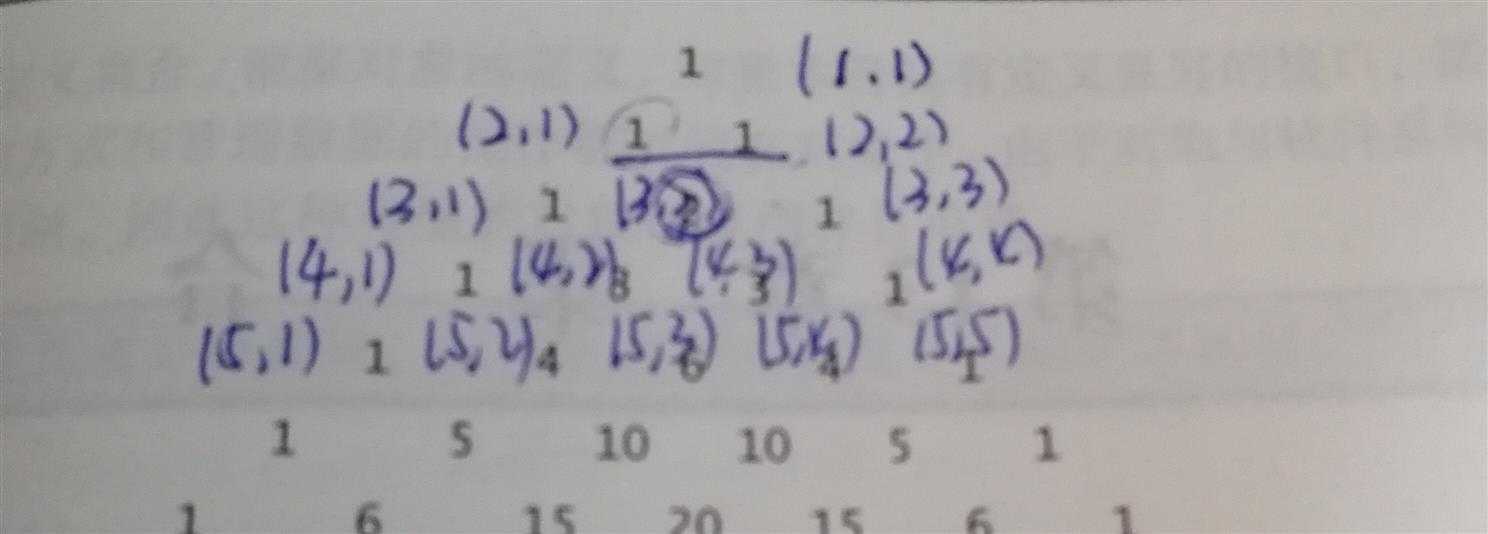 1 (1,1)
(2,1) 1 1 (2,2)
(3,1) 1 (3,2) 1 (3,3)
(4,1) 1 (4,2) 3 (4,3) 3 1 (4,4)
(5,1) 1 (5,2) 4 (5,3) 6 (5,4) 4 (5,5) 1
1 5 10 10 5 1
1 6 15 20 15 6 1